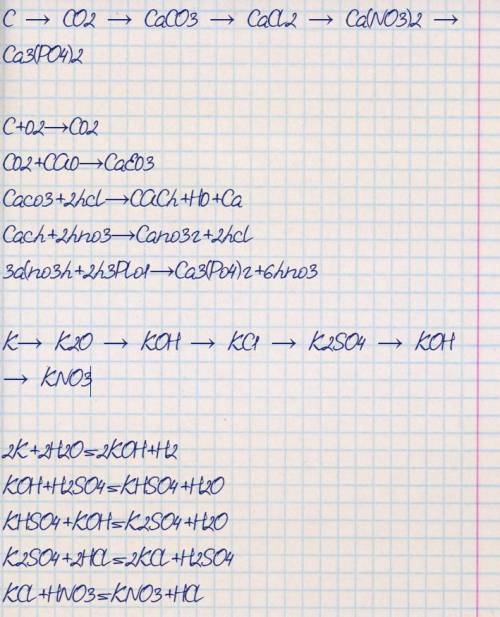 C → CO2 → CaCO3 → CaCl2 → Ca(NO3)2 →
Ca3(PO4)2
C+O2→CO2
CO2+CaO→CaCO3
Caco3+2hcl→CaCh+H0+Ca
Cach+2hno3→Cano3r+2hcl
3a(no3h+2h3Plo1→Ca3(Po4)r+6hno3
K→ K2O → KOH → KCl → K2SO4 → KOH
→ KNO3
2K+2H2O=2KOH+H2
KOH+H2SO4=KHSO4+H2O
KHSO4+KOH=K2SO4+H2O
K2SO4+2HCl=2KCl+H2SO4
KCl+HNO3=KNO3+HCl